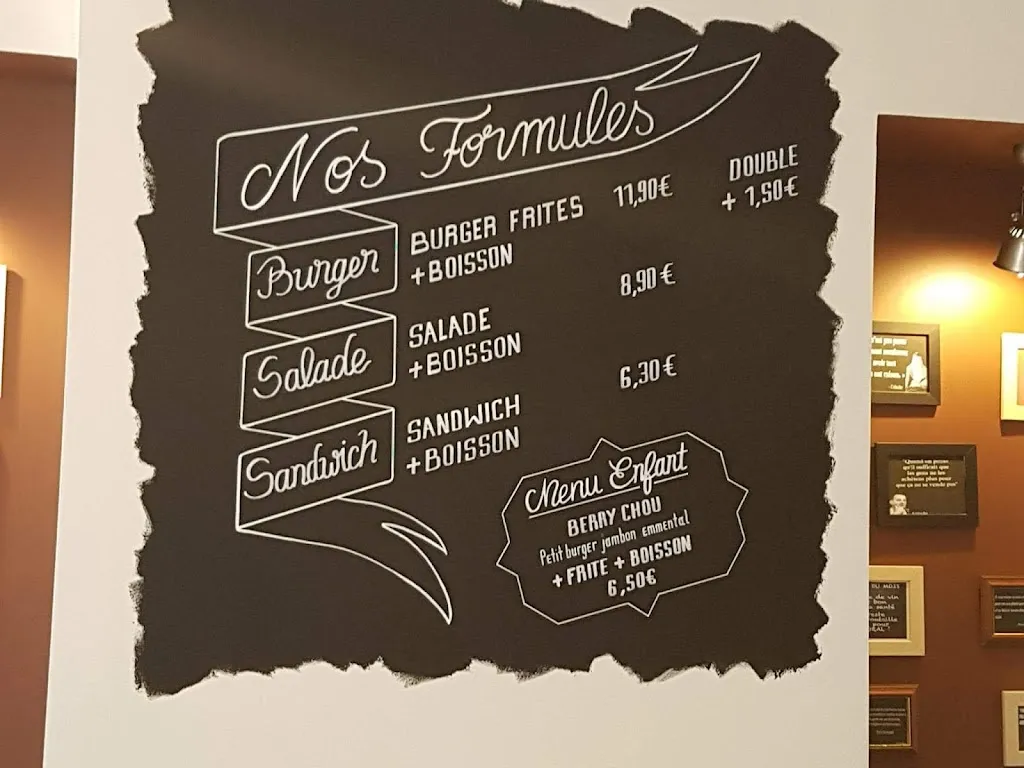 Nos Formules
Burger
BURGER FRITES
+ BOISSON
11,90€
DOUBLE
+ 1,50€
Salade
SALADE
+ BOISSON
8,90€
Sandwich
SANDWICH
+ BOISSON
6,30€
Menu Enfant
BERRY CHOU
Petit burger jambon emmental
+ FRITE + BOISSON
6,50€
"Quand on pense
qu'il suffirait que
les gens ne les
achètent plus pour
que ça ne se vende pas"